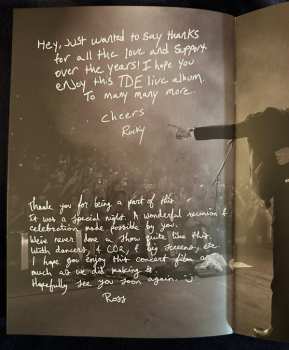 Hey, Just wanted to say thanks
for all the love and support
over the years! I hope you
enjoy this TDE live album.
To many many more..
Cheers
Rocky
Thank you for being a part of this.
It was a special night. A wonderful reunion &
celebration made possible by you.
We've never done a show quite like this.
With dancers, & CO2, & big screens, etc
I hope you enjoy this concert film as
much as we did making it.
Hopefully see you soon again.
Ross